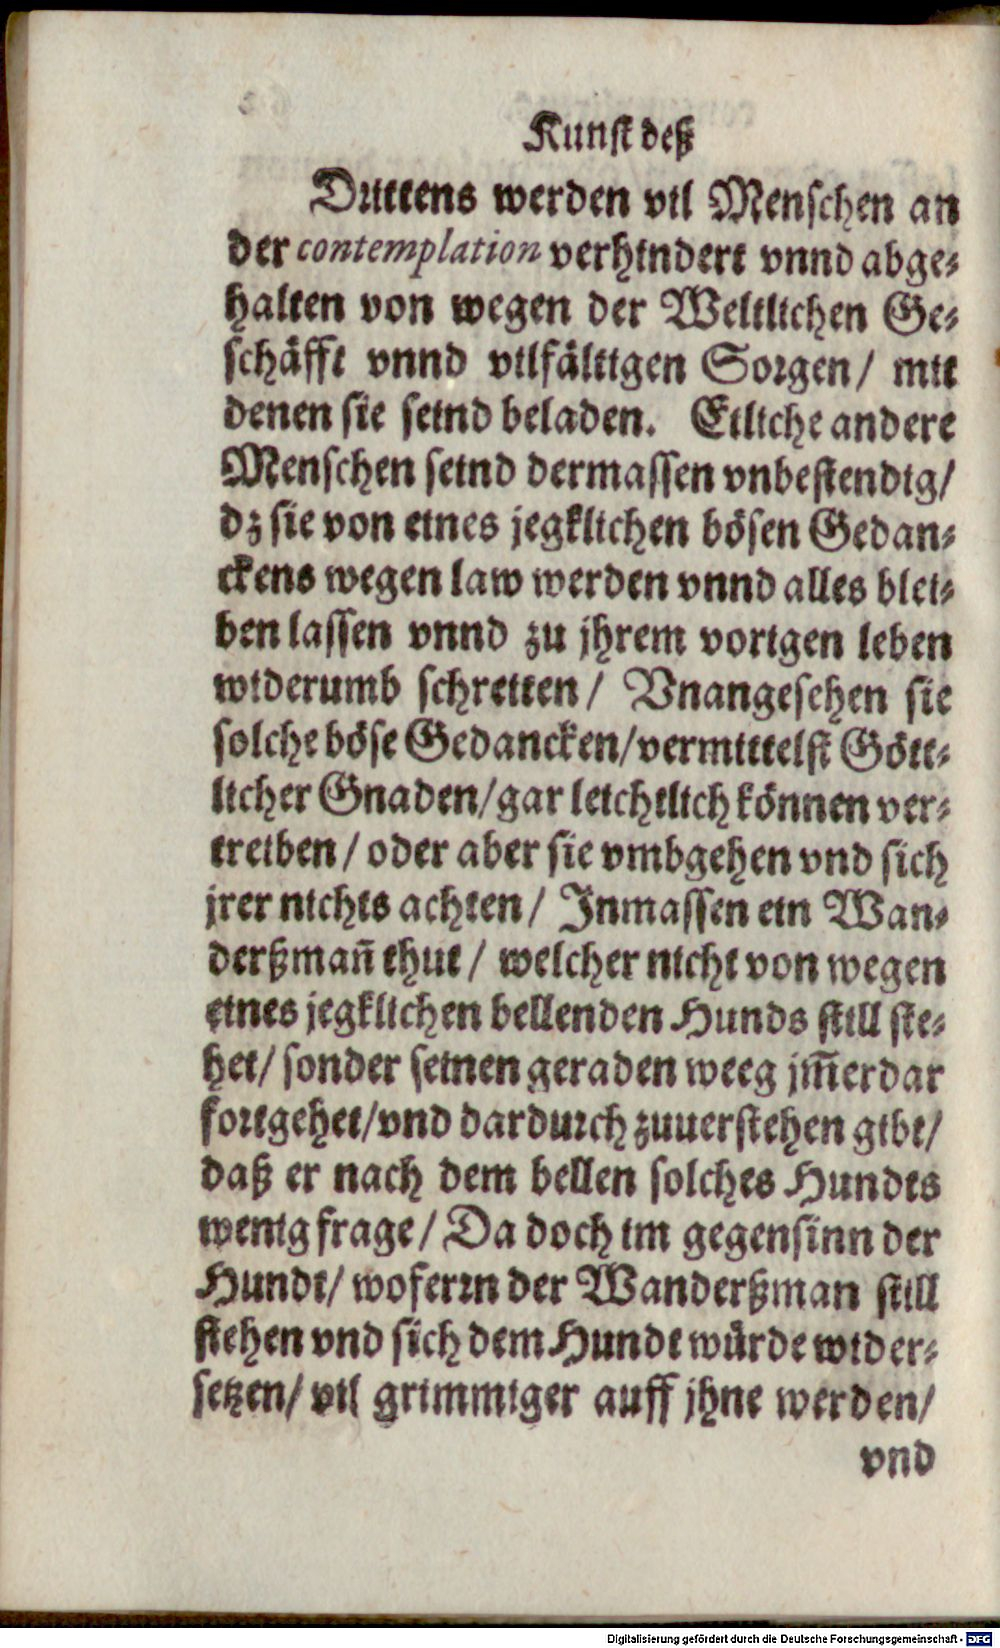 Kunst deß
Drittens werden vil Menschen an
der contemplation verhindert vnnd abge-
halten von wegen der Weltlichen Ge-
schäfft vnnd vilfältigen Sorgen/ mit
denen sie seind beladen. Etliche andere
Menschen seind dermassen vnbestendig/
dz sie von eines jegklichen bösen Gedan-
ckens wegen law werden vnnd alles blei-
ben lassen vnnd zu jhrem vorigen leben
widerumb schreiten/ Vnangesehen sie
solche böse Gedancken/vermittelst Gött-
licher Gnaden/gar leichtlich können ver-
treiben/ oder aber sie vmbgehen vnd sich
jrer nichts achten/ Inmassen ein Wan-
derßmañ thut/ welcher nicht von wegen
eines jegklichen bellenden Hunds still ste-
het/ sonder seinen geraden weeg jm̃erdar
fortgehet/vnd dardurch zuuerstehen gibt/
daß er nach dem bellen solches Hundts
wenig frage/ Da doch im gegensinn der
Hundt/ woferrn der Wanderßman still
stehen vnd sich dem Hundt würde wider-
setzen/ vil grimmiger auff jhne werden/
vnd
Digitalisierung gefördert durch die Deutsche Forschungsgemeinschaft - DFG